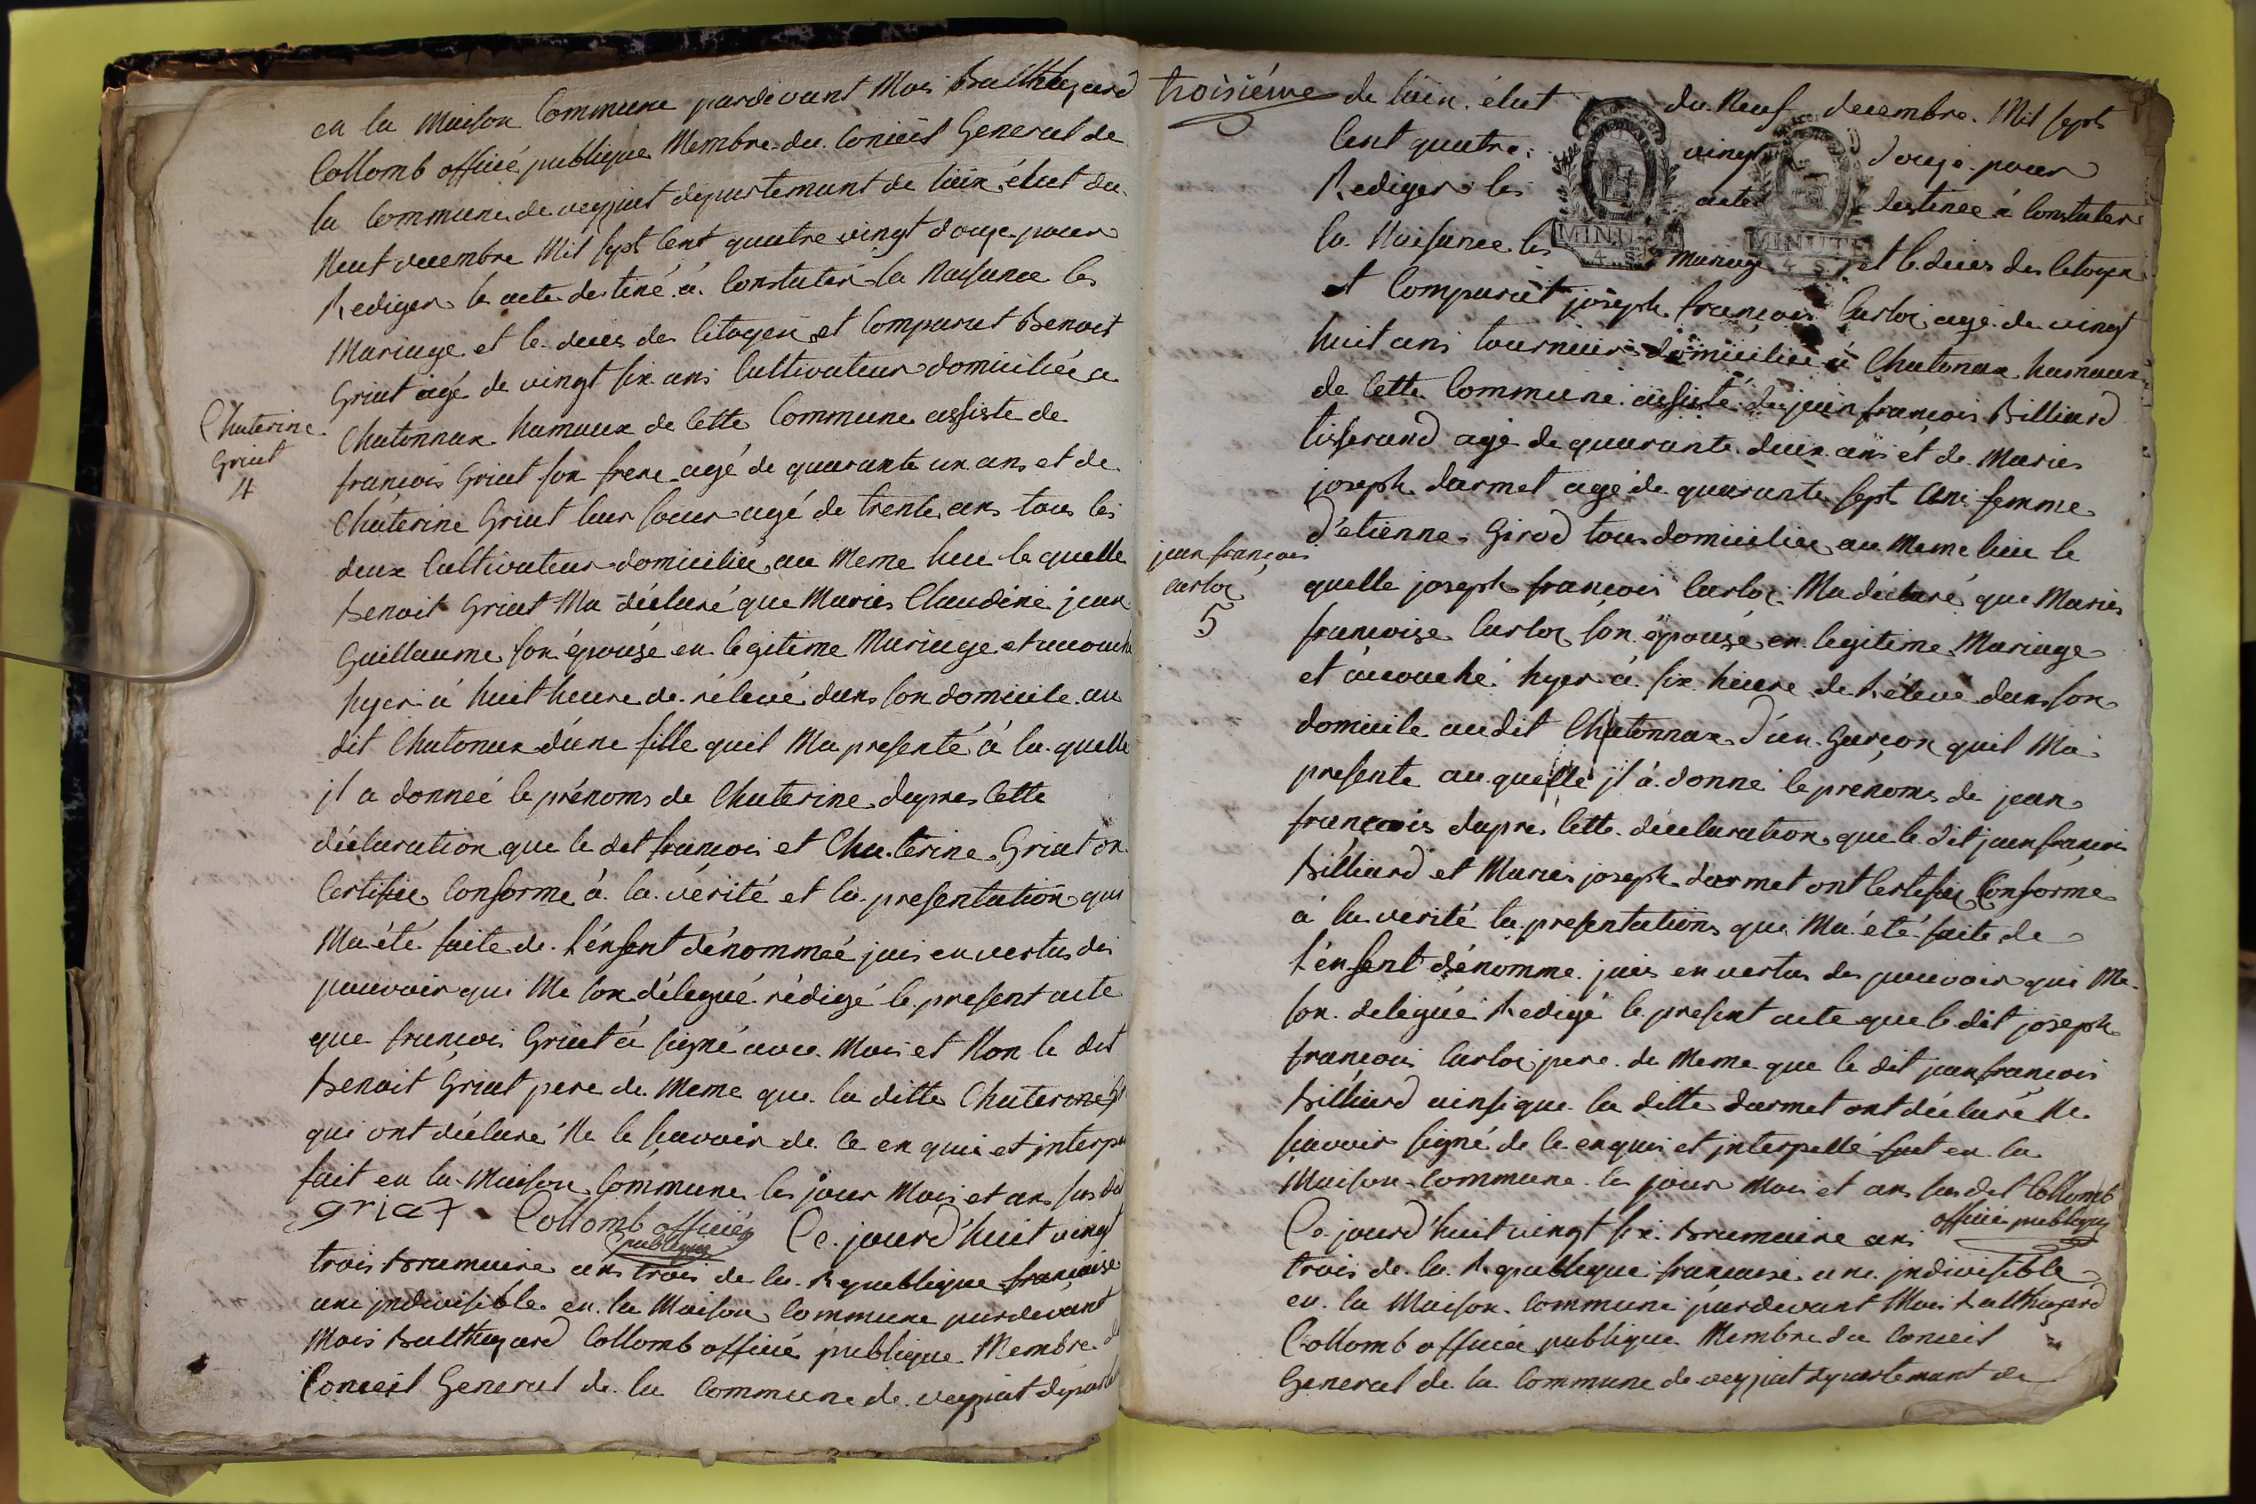 en la Maison Commune pardevant Moi Balthazard
Collomb officié publique Membre du Conieil General de
la Commune de veyziat departemant de l'ain élut du
Neuf decembre Mil sept Cent quatre vingt douze pour
Rediger le acte destiné à Constater la Naisance les
Mariage et le deces des Citoyen et Comparut Benoit
Griat agé de vingt six ans Cultivateur domiciliée a
Chatonnax hamaux de Cette Commune assiste de
Chaterine
Griat
4
françois Griat son frere agé de quarante un ans et de
Chaterine Griat leur soeur agé de trente ans tous les
deux Cultivateur domiciliée au Meme lieu le quelle
Benoit Griat Ma déclaré que Maries Claudine jean
Guillaume son épousé en legitime Mariage et accouché
hyer à huit heure de relevé dans son domicile au
dit Chatonax d'une fille quil Ma presenté à la quelle
jl a donneé le prénoms de Chaterine dapres Cette
déclaration que le dit francois et Chaterine Griat on
Certifiée Conforme à la vérité et la presentation qui
Ma été faite de l'énfent dénommeé jais en vertus des
pouvoir qui Me son délegué rédigé le present acte
que françois Griat à signé avec Moi et Non le dit
Benoit Griat pere de Meme que la ditte Chaterine
qui ont déclaré Ne le sçavoir de Ce en quis et jnterpe
fait en la Maison Commune les jour Mois et an sus dit
griat Collomb officiée
publique
Ce jourd'huit vingt
trois Brumaire ans trois de la Republique francaise
une jndivisible en la Maison Commune pardevant
Mois Balthazard Collomb officié publique Membre du
Conieil General de la Commune de veyziat departe
troisiéme de l'ain élut du Neuf decembre Mil sept
Cent quatre vingt douze pour
Rediger les acte destinée à Constater
la Naisance les Mariage et le deces des Citoyen
MINUTE
4 S
MINUTE
4 S
et Comparut joseph françois Carloz agé de vingt
huit ans tourneur domiciliée à Chatonax hamaux
de Cette Commune assisté de jean françois Billiard
tisserand agé de quarante deux ans et de Maries
joseph darmet agé de quarante sept ans femme
d'etienne Girod tous domiciliée au Meme lieu le
jean françois
carloz
5
quelle joseph françois Carloz Ma déclaré que Maries
francoise Carloz son épousé en legitime Mariage
et àccouché hyer à six heure de Réleve dans son
domicile audit Chatonnax d'un Garçon quil Ma
presente au quelle jl à donné le prenoms de jean
francois dapres Cette déclaration que le dit jean françois
Billiard et Maries joseph darmet ont Certifiée Conforme
à la verité la presentations qui Ma été faite de
l'énfent dénomme jais en vertus des pouvoir qui Me
son delegué Redigé le present acte que le dit joseph
françois Carloz pere de Meme que le dit jean françois
Billiard ainsi que la ditte darmet ont déclaré Ne
sçavoir signé de Ce enquis et jnterpellé fait en la
Maison Commune les jour Mois et an sus dit Collomb
officié publique
Ce jourd'huit vingt six Brumaire ans
trois de la Republique francaise une jndivisible
en la Maison Commune pardevant Mois Balthazard
Collomb officiée publique Membre du Conieil
General de la Commune de veyziat departemant de